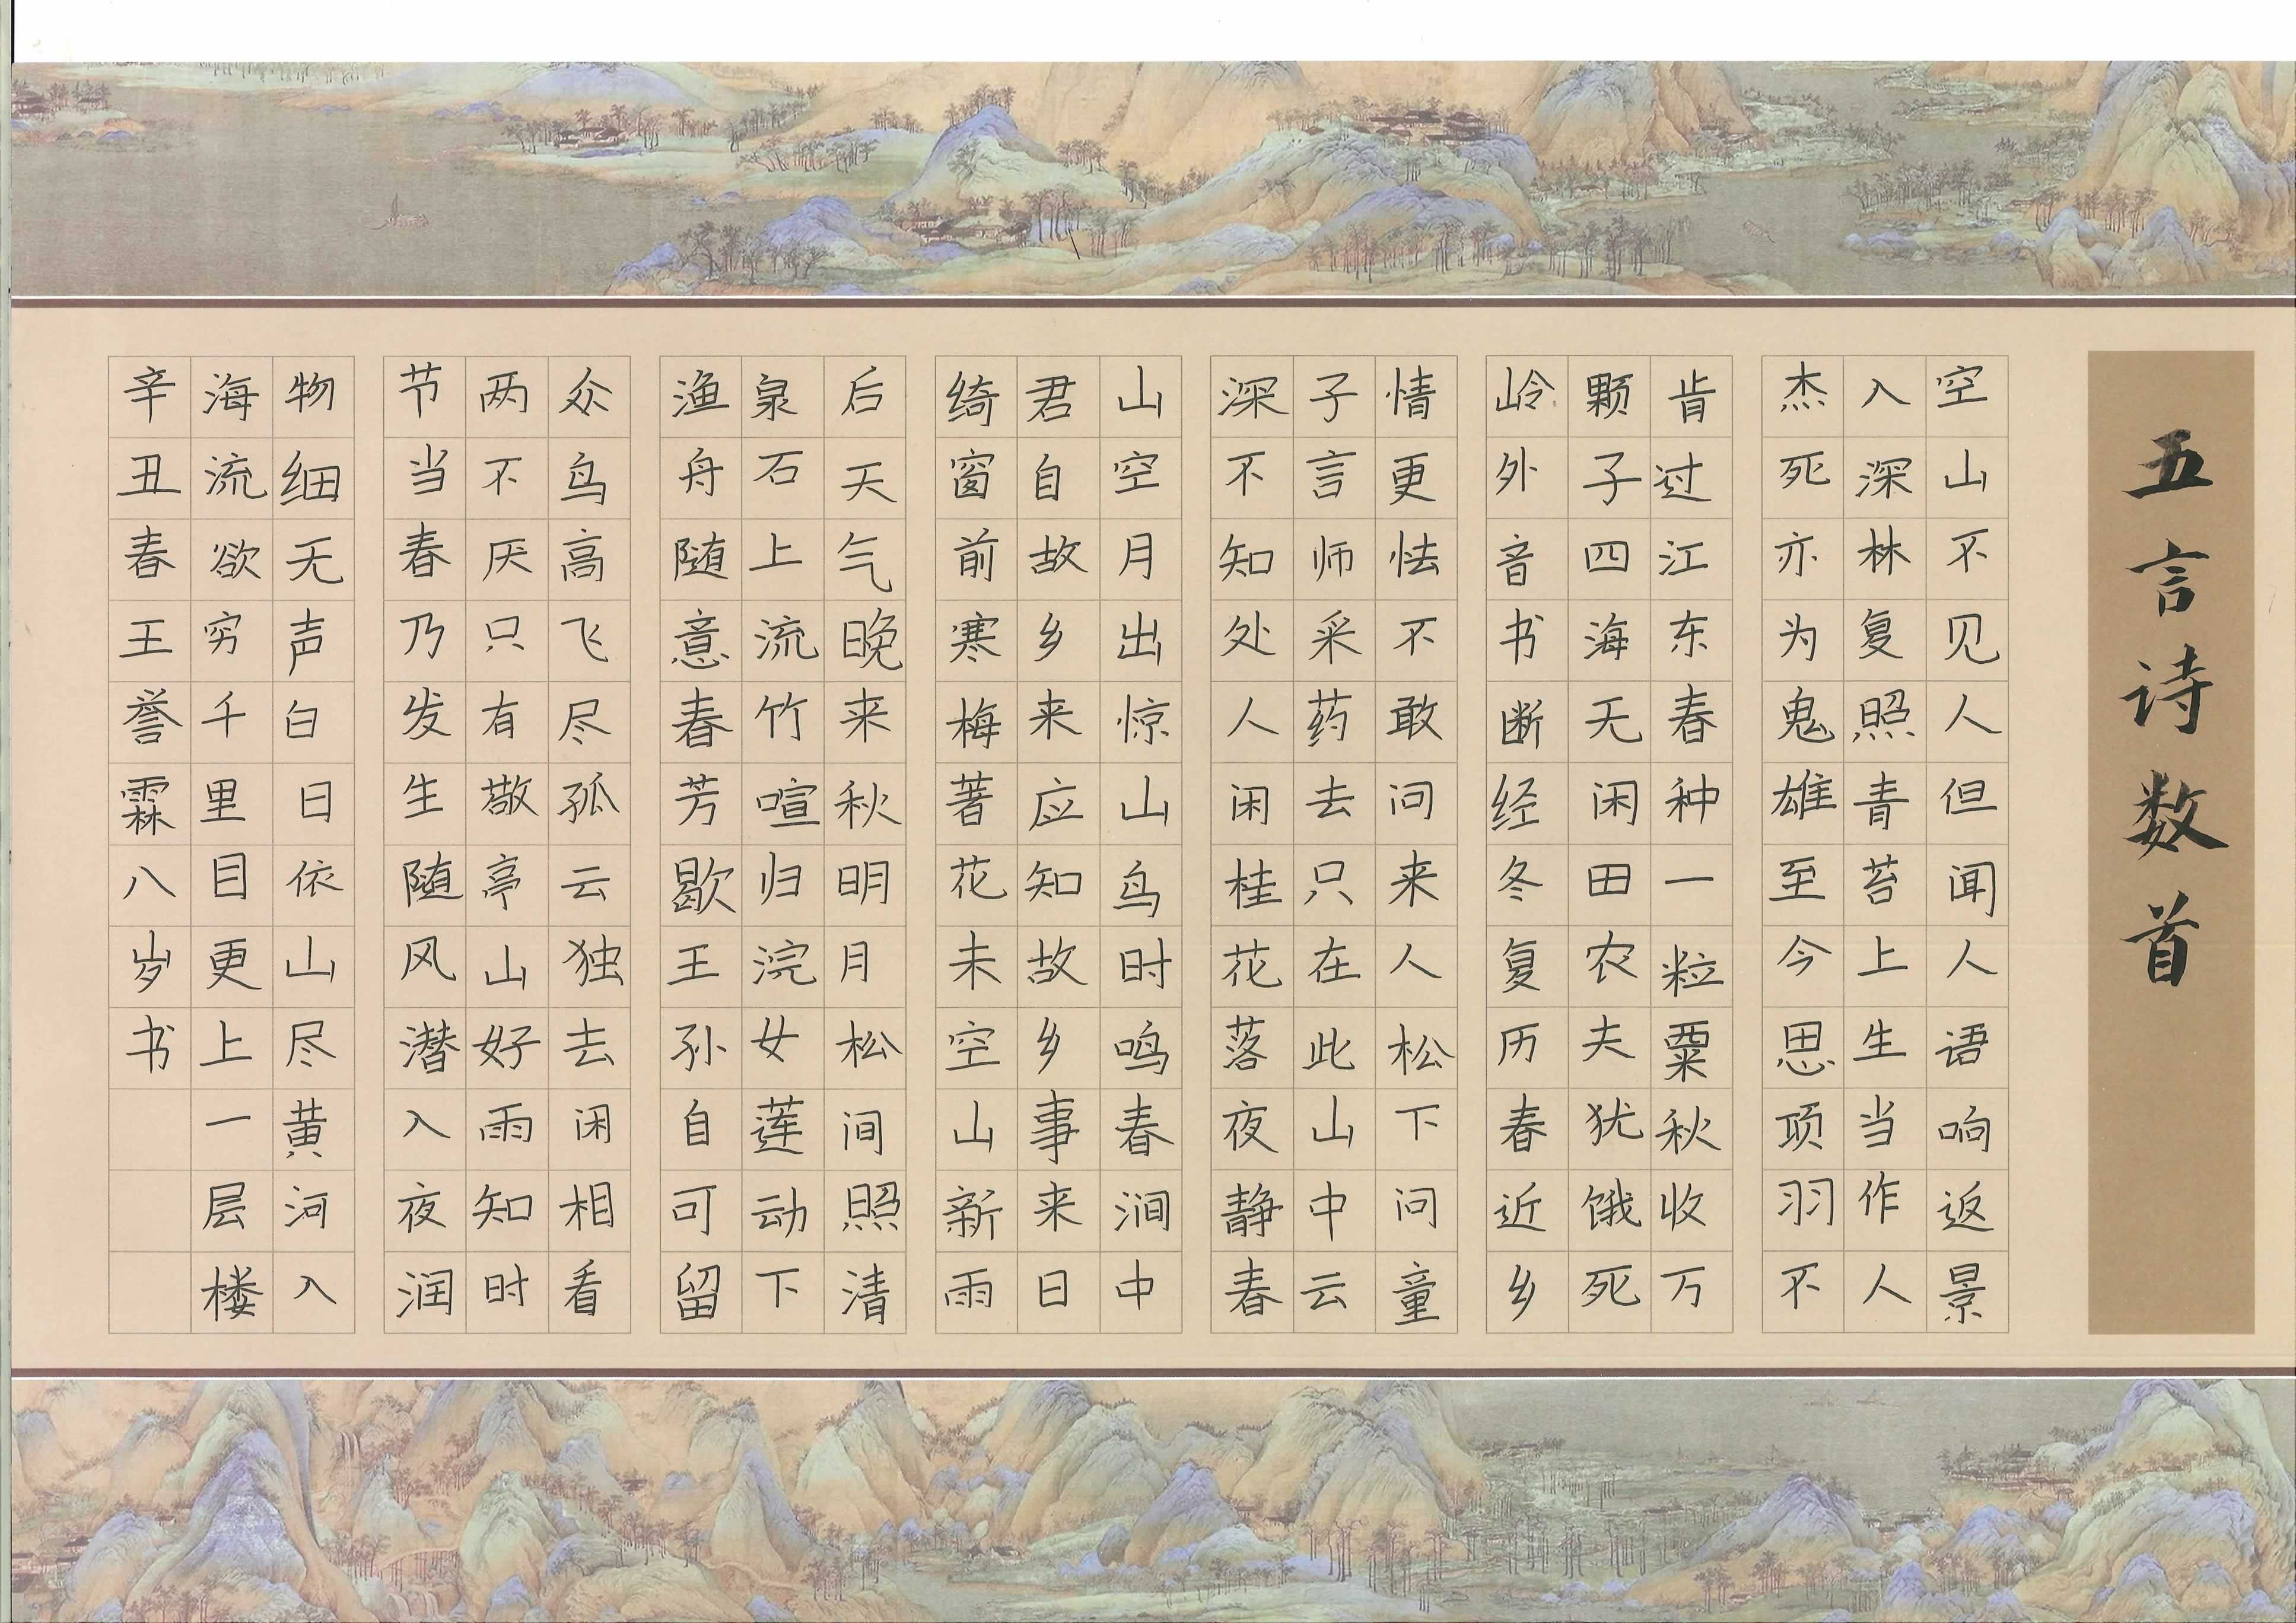 五言诗数首
空山不见人但闻人语响返景
入深林复照青苔上生当作人
杰死亦为鬼雄至今思项羽不
肯过江东春种一粒粟秋收万
颗子四海无闲田农夫犹饿死
岭外音书断经冬复历春近乡
情更怯不敢问来人松下问童
子言师采药去只在此山中云
深不知处人闲桂花落夜静春
山空月出惊山鸟时鸣春涧中
君自故乡来应知故乡事来日
绮窗前寒梅著花未空山新雨
后天气晚来秋明月松间照清
泉石上流竹喧归浣女莲动下
渔舟随意春芳歇王孙自可留
众鸟高飞尽孤云独去闲相看
两不厌只有敬亭山好雨知时
节当春乃发生随风潜入夜润
物细无声白日依山尽黄河入
海流欲穷千里目更上一层楼
辛丑春王誉霖八岁书